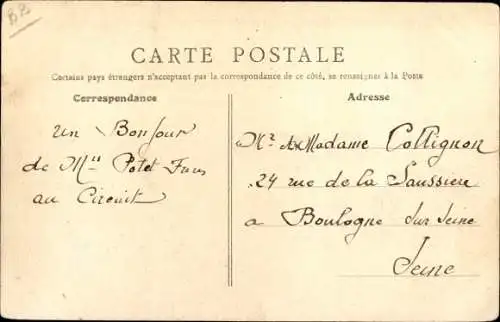 BB
CARTE POSTALE
Certains pays étrangers n'acceptant pas la correspondance de ce côté, se renseigner à la Poste
Correspondance
Un Bonjour
de M.rs Potet
au Circuit
Adresse
Mr & Madame Collignon
24 rue de la Saussiere
a Boulogne sur Seine
Seine